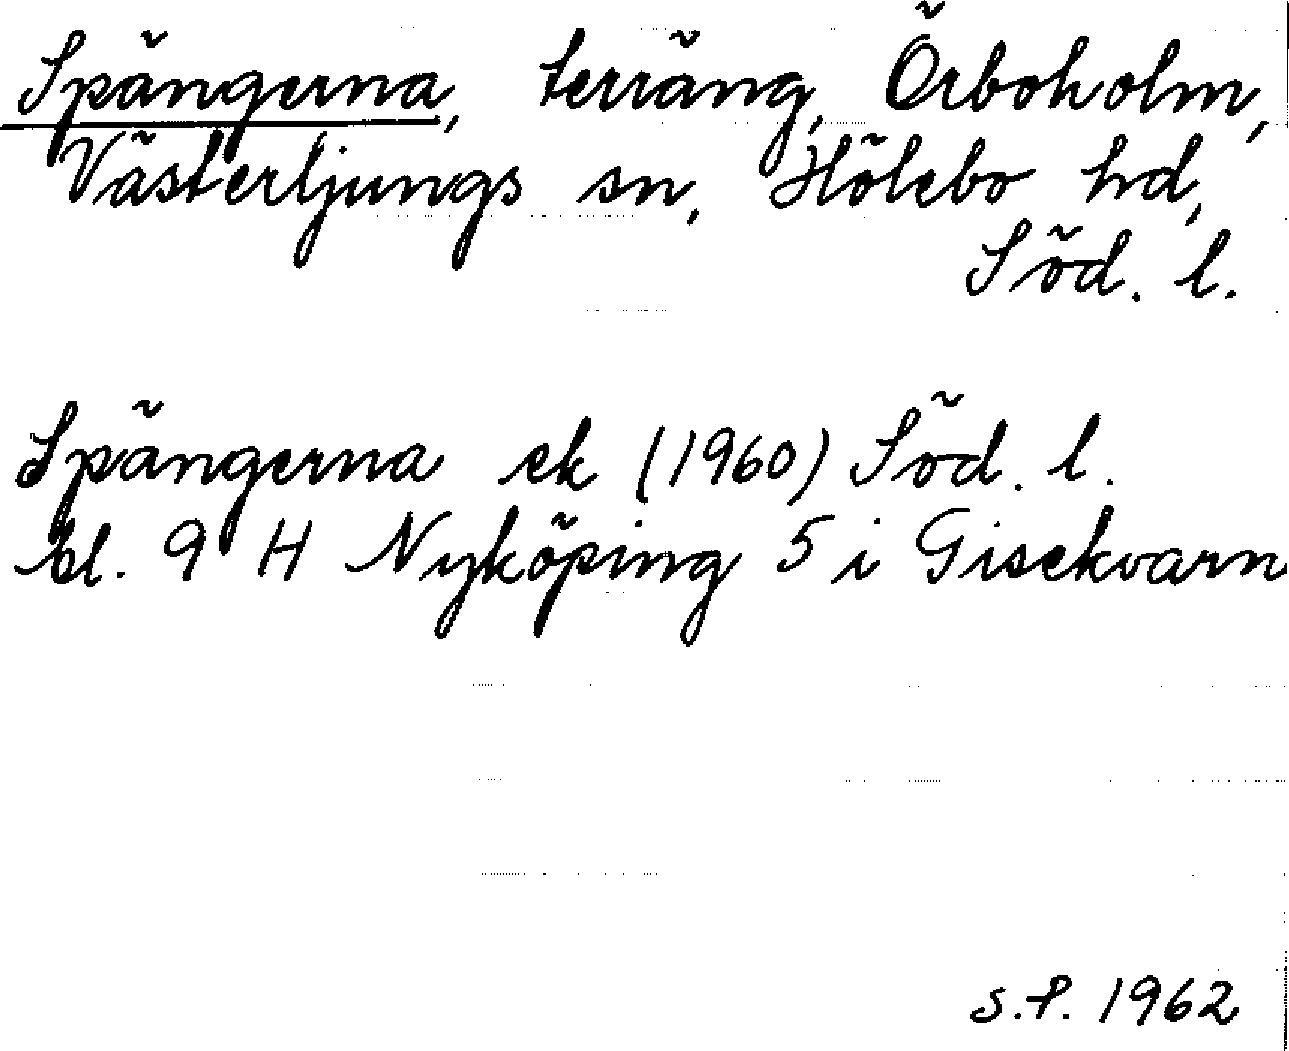 Spängerna, terräng, Örboholm,
Västerljungs sn, Hölebo hd,
Söd. l.
Spängerna ek (1960) Söd. l.
bl. 9 H Nyköping 5 i Gisekvarn
S.P. 1962